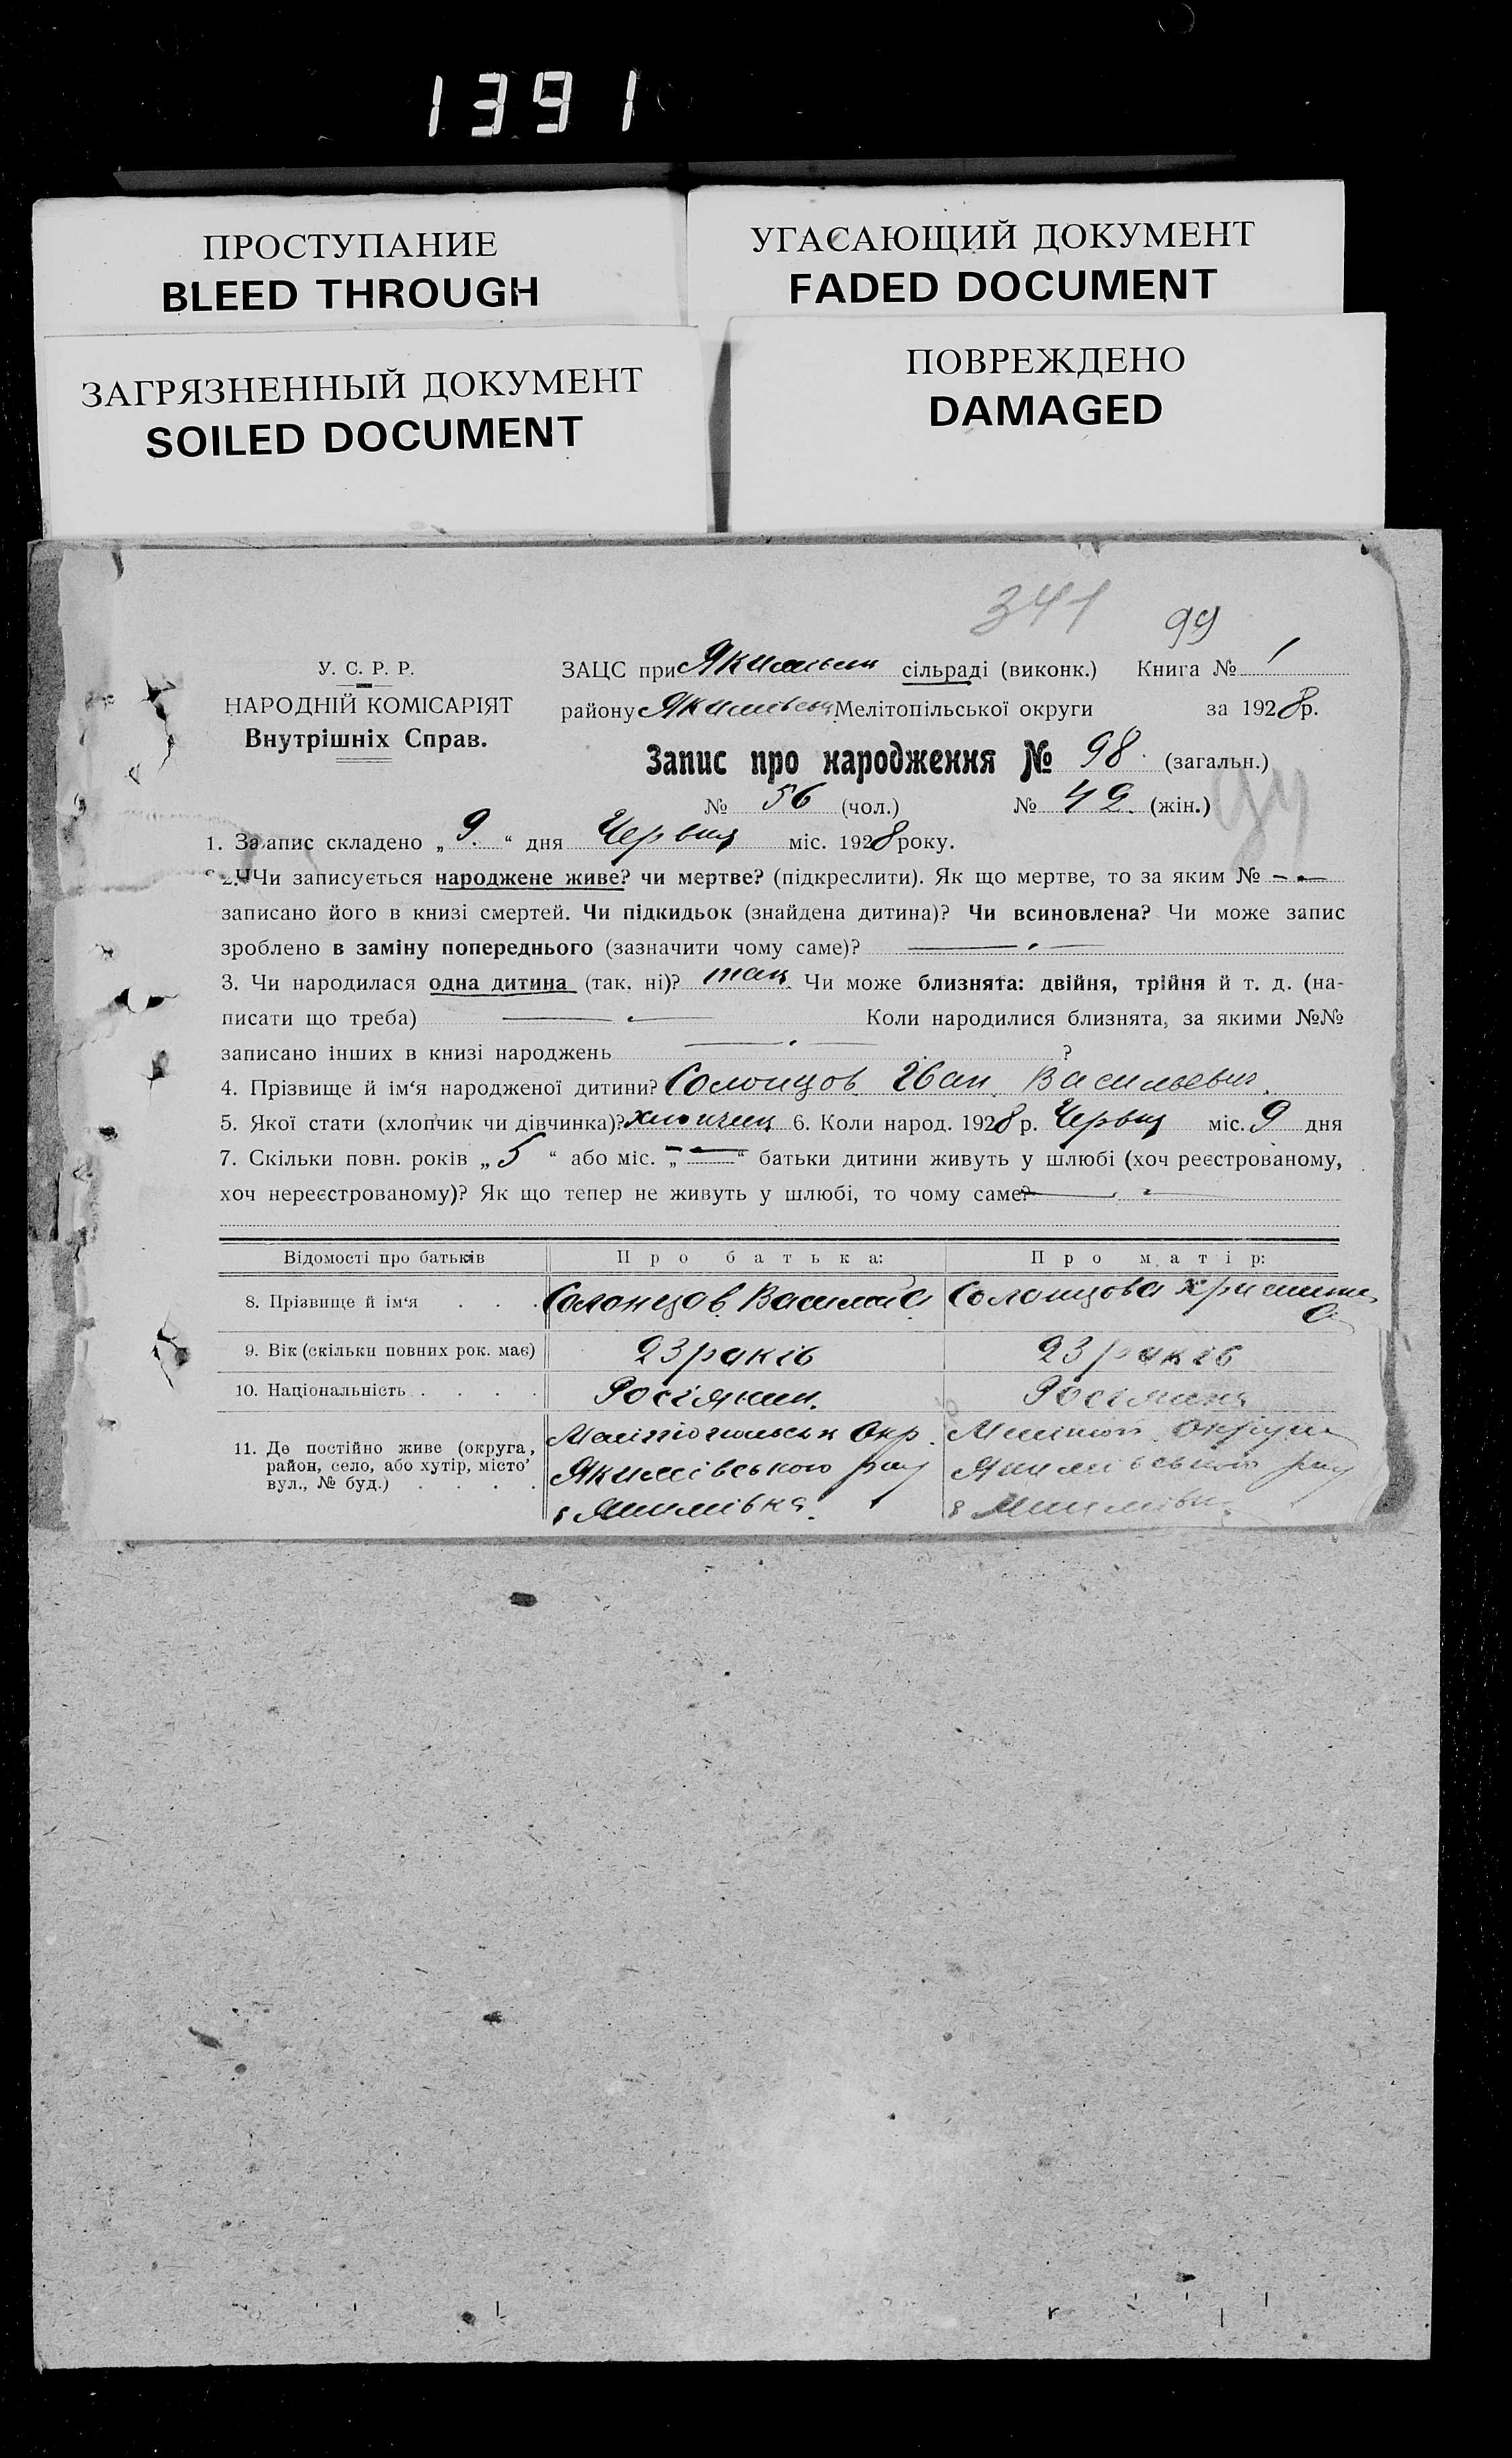 1391
ПРОСТУПАНИЕ
BLEED THROUGH
УГАСАЮЩИЙ ДОКУМЕНТ
FADED DOCUMENT
ЗАГРЯЗНЕННЫЙ ДОКУМЕНТ
SOILED DOCUMENT
ПОВРЕЖДЕНО
DAMAGED
341
99
У. С. Р. Р.
НАРОДНІЙ КОМІСАРІЯТ
Внутрішніх Справ.
ЗАЦС при сільраді (виконк.) Книга № 1
району Мелітопільської округи за 1928 р.
Запис про народження № 98 (загальн.)
№ 56 (чол.) № 42 (жін.)
1. Запис складено „9.“ дня Червня міс. 1928 року.
2. Чи записується народжене живе? чи мертве? (підкреслити). Як що мертве, то за яким № —
записано його в книзі смертей. Чи підкидьок (знайдена дитина)? Чи всиновлена? Чи може запис
зроблено в заміну попереднього (зазначити чому саме)? —
3. Чи народилася одна дитина (так, ні)? так Чи може близнята: двійня, трійня й т. д. (на-
писати що треба) — Коли народилися близнята, за якими №№
записано інших в книзі народжень — ?
4. Прізвище й ім‘я народженої дитини? Солонцов Іван Васильевич.
5. Якої стати (хлопчик чи дівчинка)? хлопчик 6. Коли народ. 1928 р. Червня міс. 9 дня
7. Скільки повн. років „5“ або міс. „—“ батьки дитини живуть у шлюбі (хоч реєстрованому,
хоч нереєстрованому)? Як що тепер не живуть у шлюбі, то чому саме? —
Відомості про батьків Про батька: Про матір:
8. Прізвище й ім‘я . . . Солонцов Солонцова
9. Вік (скільки повних рок. має) 23 років 23 років
10. Національність . . . . Росіянин. Росіянка
11. Де постійно живе (округа, район, село, або хутір, місто, вул., № буд.) . . . .
Окр. Округи
Якимівського рай Якимівського рай
Якимівка. Якимівка